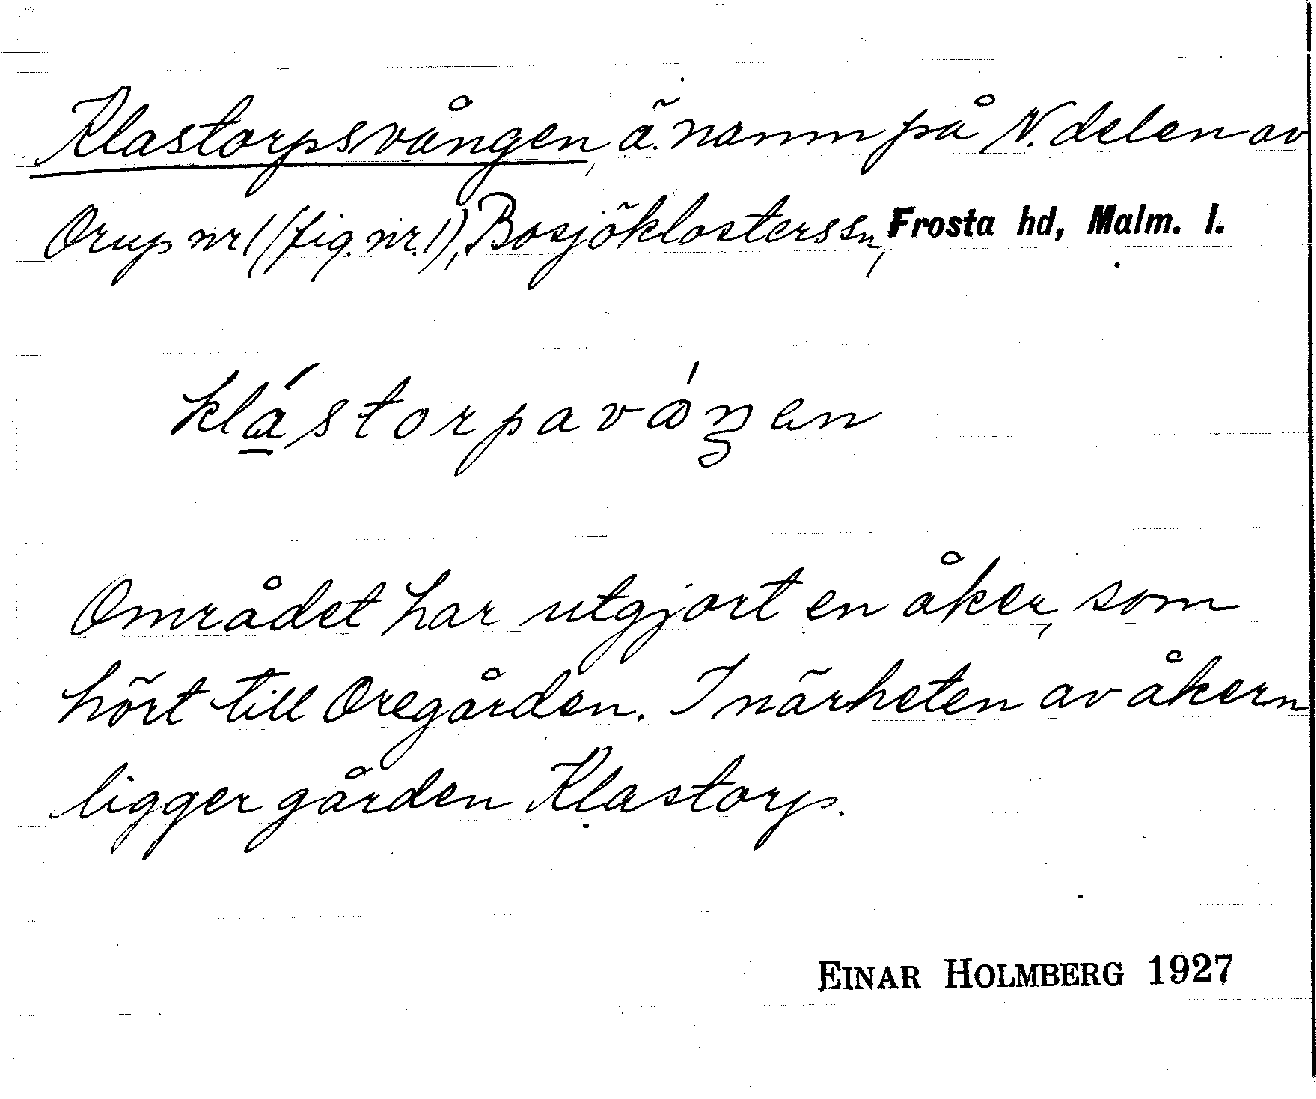 Klastorpsvången, ä. namn på N. delen av
Orup nr 1 (fig. nr. 1), Bosjöklosters sn, Frosta hd, Malm. l.
klástorpavåŋen
Området har utgjort en åker, som
hört till Oregården. I närheten av åkern
ligger gården Klastorp.
EINAR HOLMBERG 1927